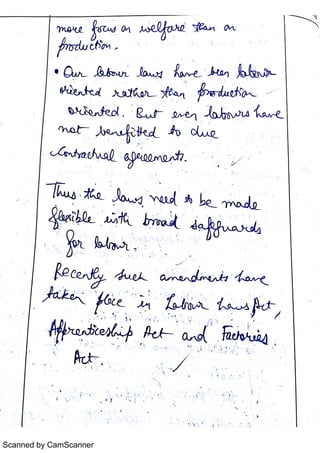 more focus on welfare than on
production.
• Our labour laws have been labour
oriented rather than production
oriented. But even labours have
not benefitted to due
contractual agreements.
Thus the laws need to be made
flexible with broad safeguards
for labour.
Recently such amendments have
taken place in Labour Laws Act,
Apprenticeship Act and Factories
Act
Scanned by CamScanner